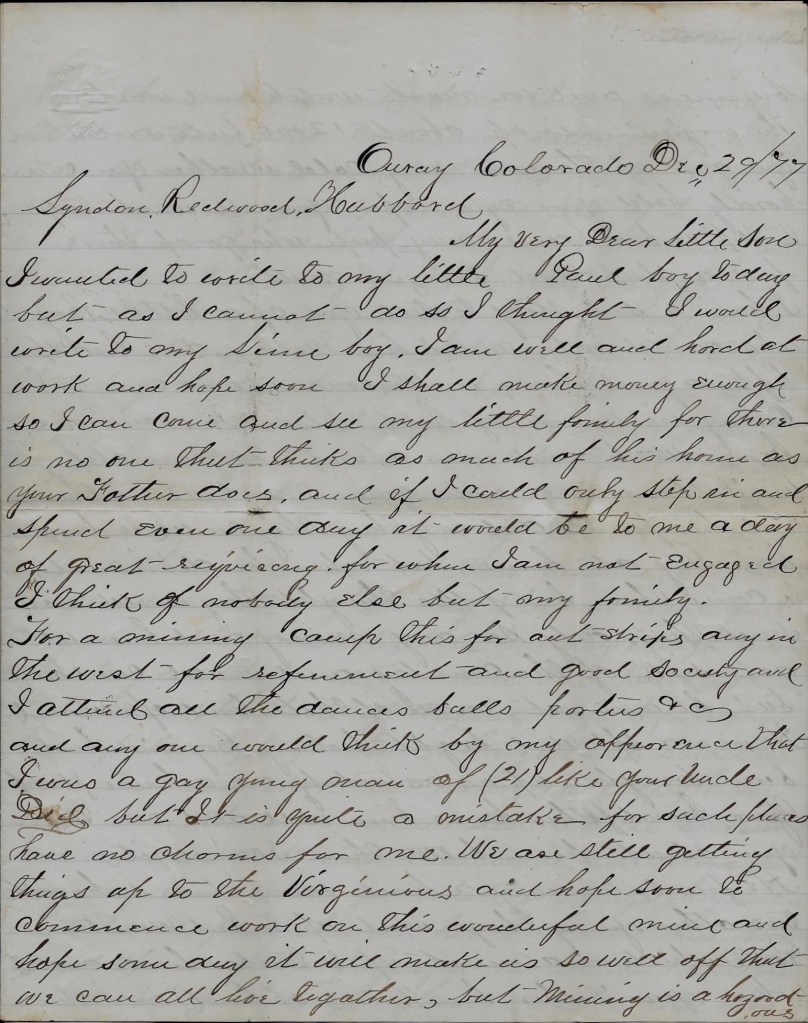 Ouray Colorado Dec, 29/77
Lyndon, Redwood, Hubbard,
My very Dear Little Son
I wanted to write to my little Paul boy today
but as I cannot do so I thought I would
write to my boy. I am well and hard at
work and hope soon I shall make money enough
so I can come and see my little family for there
is no one that thicks as much of his home as
your Father does, and if I could only step in and
spend even one day it would be to me a day
of great rejoicing. for when I am not Engaged
I think of nobody Else but my family.
For a mining camp this far out strips any in
the west for refinement and good society and
I attend all the dances balls parties & c
and any one would think by my apperence that
I was a gay yung man of (21) like your Uncle
but It is quite a mistake for such places
have no charms for me. We are still getting
things up to the Virginious and hope soon to
commence work on this wonderful mine and
hope some day it will make us so well off that
we can all live togather, but Mining is a hazard
ous